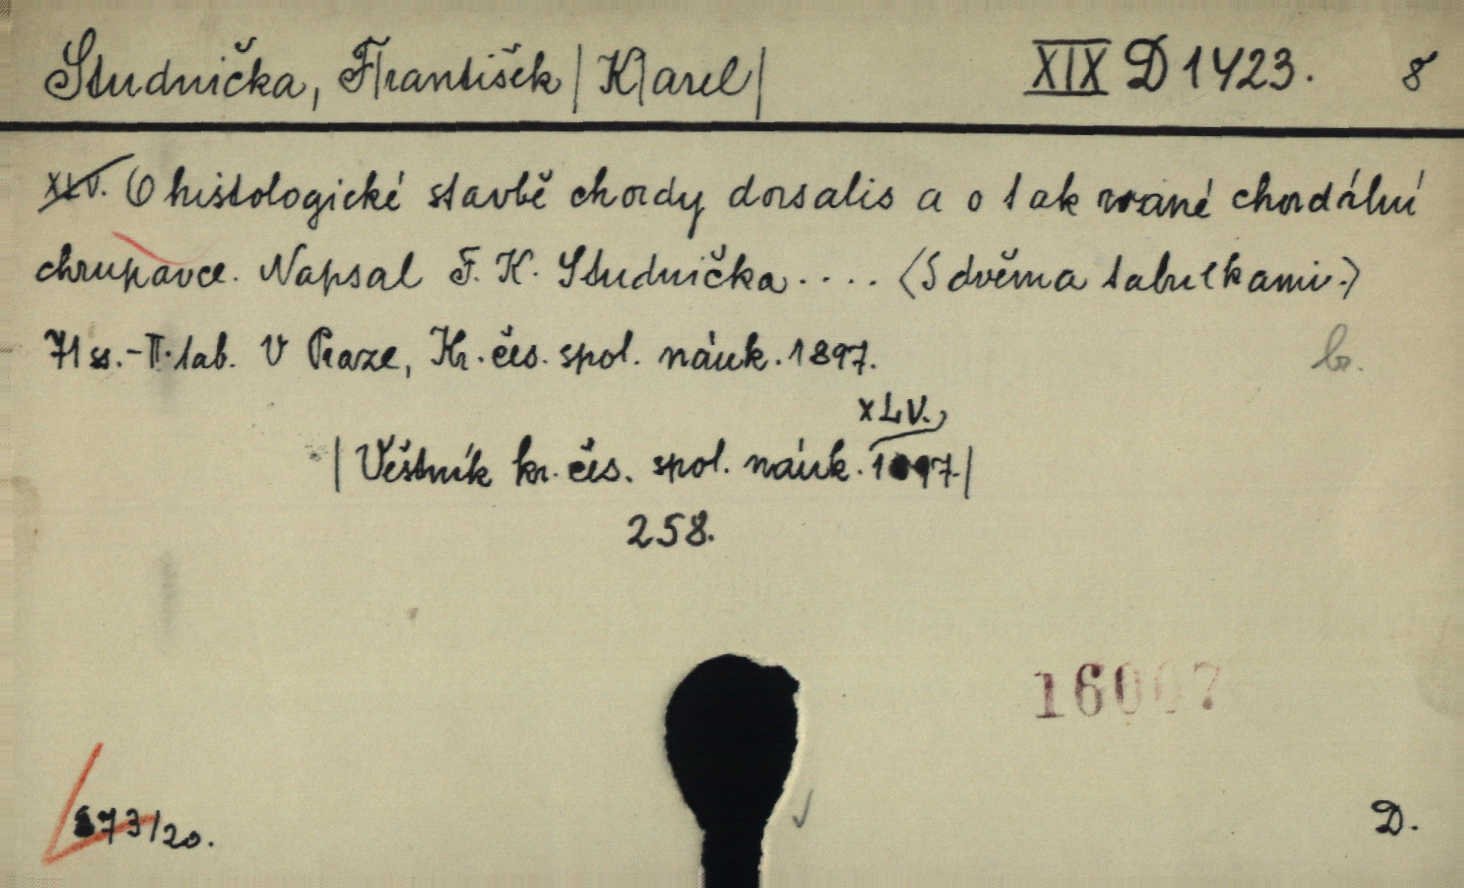 Studnička, F|rantišek| K|arel| XIX D 1423. 8
XLV. O histologické stavbě chordy dorsalis a o tak zvané chordální
chrupavce. Napsal F. K. Studnička.... (S dvěma tabulkami.)
71 ss.-II. tab. V Praze, Kr. čes. spol. náuk. 1897.
br.
XLV.,
|Věstník kr. čes. spol. náuk. 1897.|
258.
16007
73/20.
D.